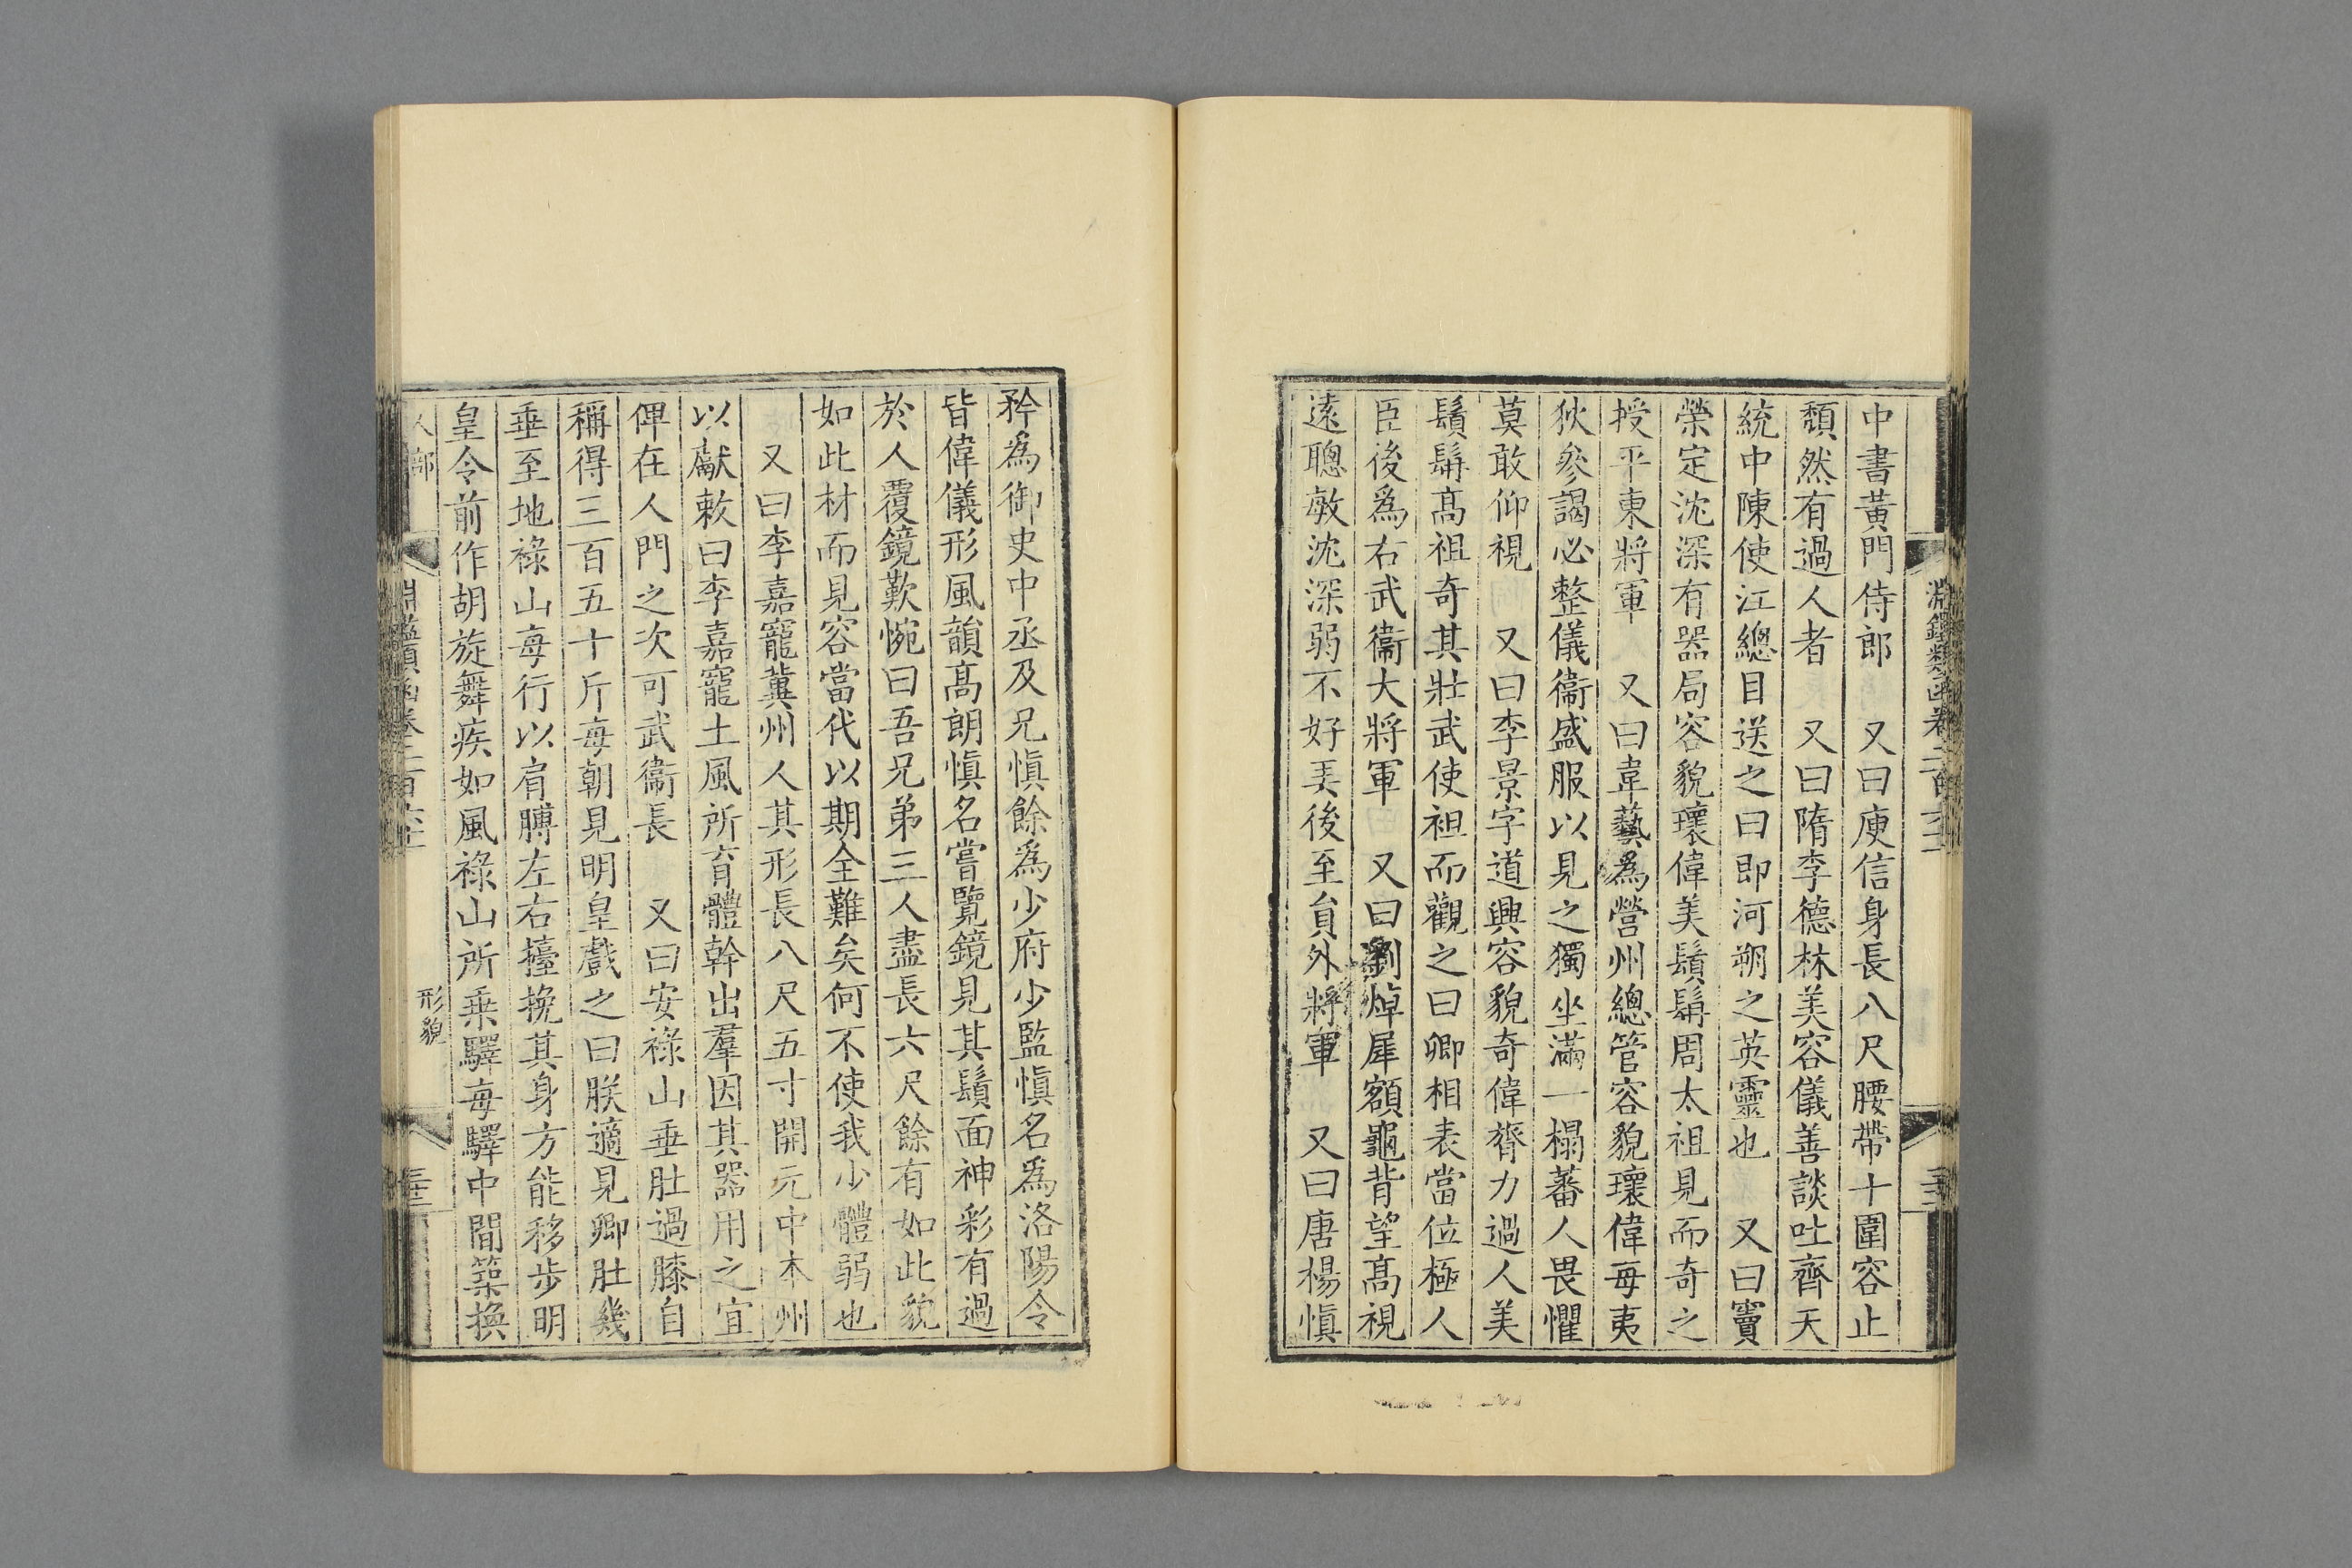 淵鑑類函卷二百六十
中書黃門侍郎　又曰庾信身長八尺腰帶十圍容止
頹然有過人者　又曰隋李德林美容儀善談吐齊天
統中陳使江總目送之曰即河朔之英靈也　又曰竇
榮定沈深有器局容貌瓌偉美鬚髯周太祖見而奇之
授平東將軍　又曰韋藝爲營州總管容貌瓌偉每夷
狄參謁必整儀衞盛服以見之獨坐滿一榻蕃人畏懼
莫敢仰視　又曰李景字道興容貌奇偉膂力過人美
鬚髯高祖奇其壯武使袒而觀之曰卿相表當位極人
臣後爲右武衞大將軍　又曰劉焯犀額龜背望高視
遠聰敏沈深弱不好弄後至貟外將軍　又曰唐楊愼
矜爲御史中丞及兄愼餘爲少府少監愼名爲洛陽令
皆偉儀形風韻高朗愼名嘗覽鏡見其鬚面神彩有過
於人覆鏡歎惋曰吾兄弟三人盡長六尺餘有如此貌
如此材而見容當代以期全難矣何不使我少體弱也
又曰李嘉寵冀州人其形長八尺五寸開元中本州
以獻敕曰李嘉寵土風所育體幹出羣因其器用之宜
俾在人門之次可武衞長　又曰安祿山垂肚過膝自
稱得三百五十斤每朝見明皇戲之曰朕適見卿肚幾
垂至地祿山每行以肩膊左右擡挽其身方能移步明
皇令前作胡旋舞疾如風祿山所乗驛每驛中間築換
人部
淵鑑類函卷二百六十
形貌